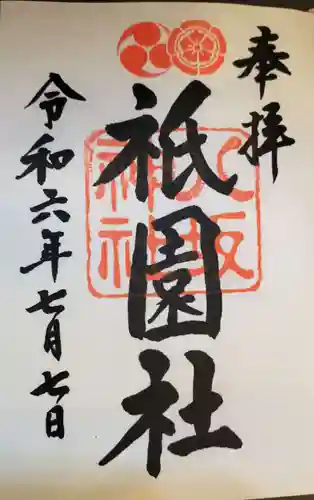 奉拝
八坂神社
祇園社
令和六年七月七日